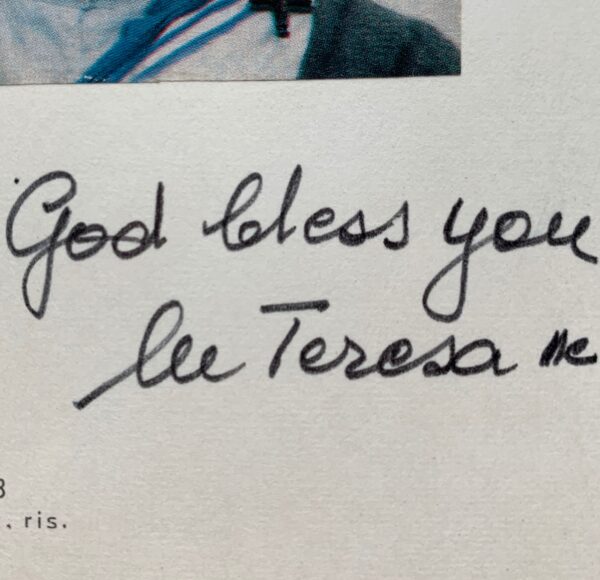 God bless you
lu Teresa mc
8
. ris.